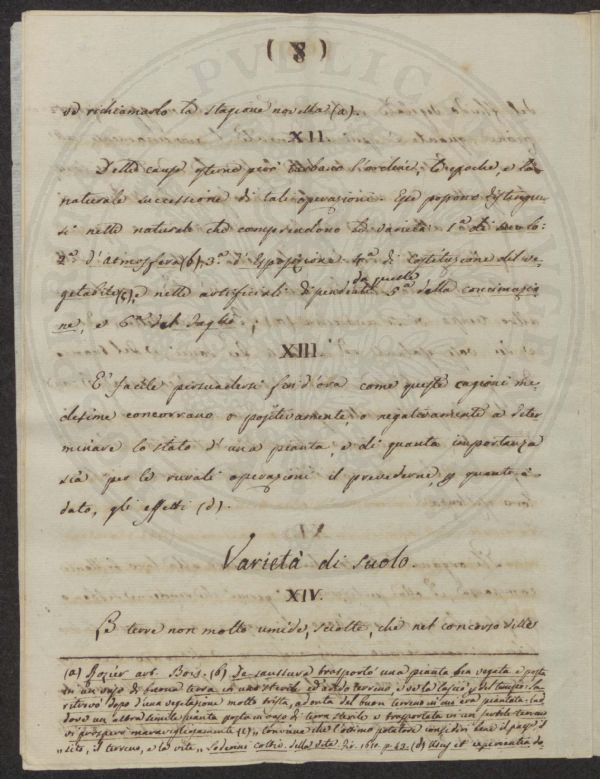 (8)
ed richiamarlo la stagione novella (a).
XII.
Delle cause esterne però turbano l'ordine, le epoche, e la
naturale successione di tali operazioni. Esse possono distinguer
si nelle naturali che comprendono le varietà 1.ª di suolo:
2.ª d'Atmosfera (b), 3.ª d'Esposizione 4.ª di Costituzione del ve-
getabile (c), e nelle artificiali dipendenti da quelle 5.ª della concimazio
ne, e 6.ª del Taglio
XIII.
E' facile persuadersi fin d'ora come queste cagioni me-
desime concorrano o positivamente, o negativamente a deter
minare lo stato d'una pianta, e di quanta importanza
sia per le rurali operazioni il prevederne, quanto è
dato, gli effetti (d).
Varietà di suolo.
XIV.
Le terre non molto umide, sciolte, che nel concorso delle
(a) Rozier art. Bois. (b) De saussure trasportò una pianta ben vegeta e posta
in un vaso di buona terra in uno sterile ed arido terreno, e ve la lasciò del tempo: la
ritrovò dopo d'una vegetazione molto trista, ad onta del buon terreno in cui era piantata. Lad
dove un'altra simile pianta posta in vaso di terra sterile e trasportata in un fertile terreno
vi prosperò maravigliosamente (c) „ Conviene che l'ottimo potatore consideri bene il paese il
„ sito, il terreno, e la vite „ Soderini Coltiv. della Vite. Fir. 1610. p. 43. (d) Usus et experientia do